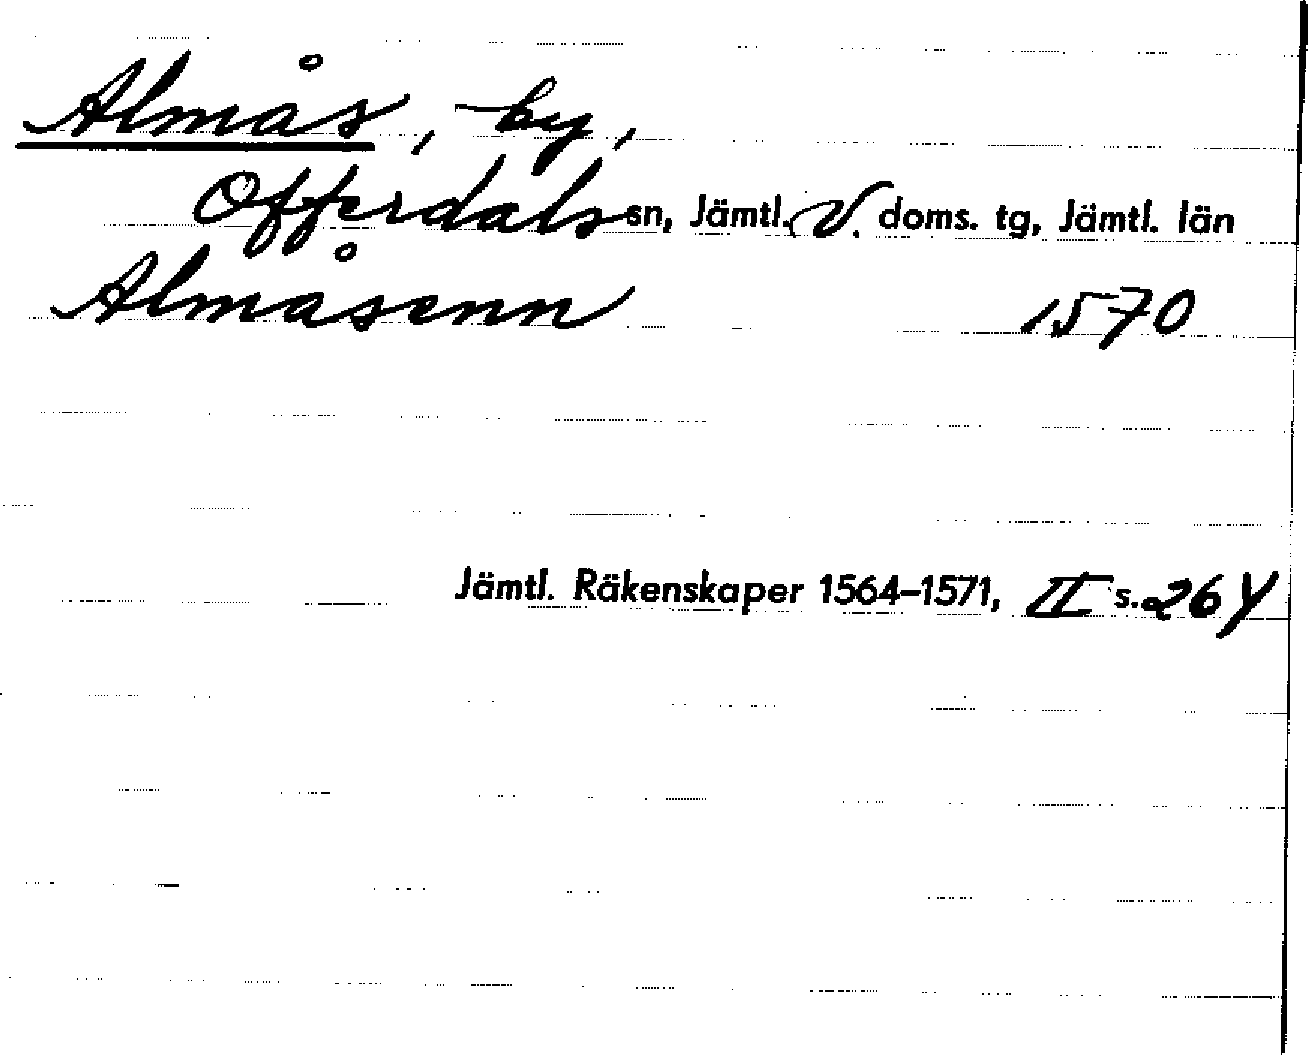 Almås, by,
Offerdals sn, Jämtl. V. doms. tg, Jämtl. län
Almåsenn 1570
Jämtl. Räkenskaper 1564–1571, II s. 264